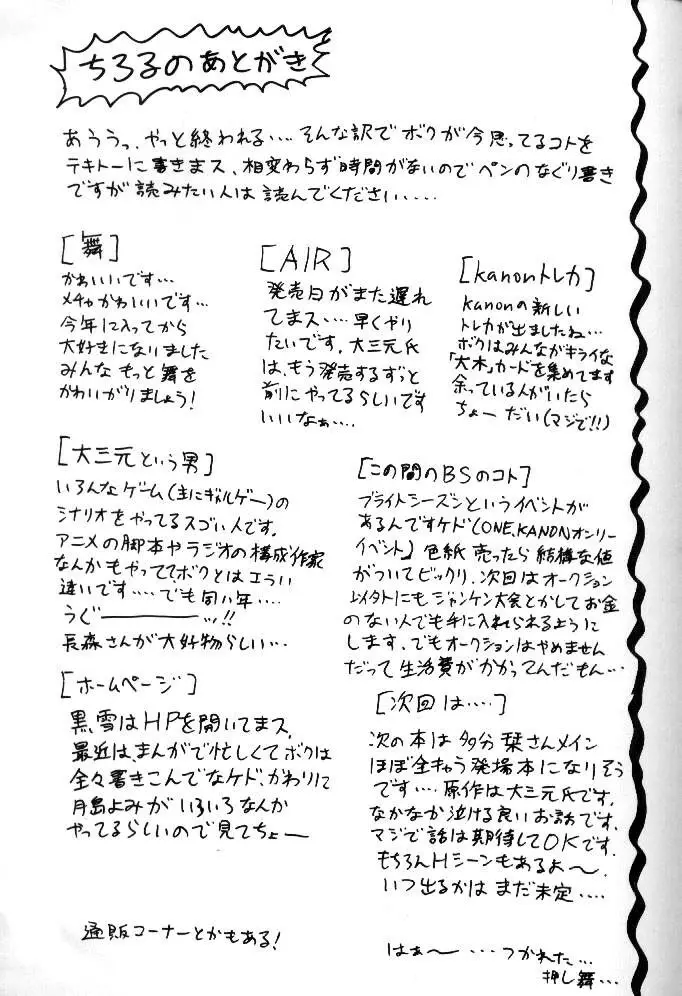 ちろ子のあとがき
あううっ、やっと終われる‥‥そんな訳でボクが今思ってるコトを
テキトーに書きまス、相変わらず時間がないのでペンのなぐり書き
ですが読みたい人は読んでください‥‥‥
[舞]
かわいいです…
メチャかわいいです…
今年に入ってから
大好きになりました
みんなもっと舞を
かわいがりましょう!
[AIR]
発売日がまた遅れ
てまス‥‥早くやり
たいです。大三元氏
は、もう発売するずっと
前にやってるらしいです
いいなぁ‥‥
[kanonトレカ]
kanonの新しい
トレカが出ましたね…
ボクはみんながキライな
「大木」カードを集めてます
余っている人がいたら
ちょーだい(マジで!!)
[大三元という男]
いろんなゲーム(主にギャルゲー)の
シナリオをやってるスゴい人です。
アニメの脚本やラジオの構成作家
なんかもやっててボクとはエラい
違いです‥‥でも同い年‥‥
うぐーーーーッ!!
長森さんが大好物らしい…
[この間のBSのコト]
ブライトシーズンというイベントが
あるんですケド(ONE、KANONオンリー
イベント)色紙売ったら結構な値
がついてビックリ、次回はオークション
以外にもジャンケン大会とかしてお金
のない人でも手に入れられるように
します。でもオークションはやめません
だって生活費がかかってんだもん…
[ホームページ]
黒雪はHPを開いてまス、
最近は、まんがで忙しくてボクは
全々書きこんでなケド、かわりに
月島よみがいろいろなんか
やってるらしいので見てちょー
通販コーナーとかもある!
[次回は‥‥]
次の本は多分栞さんメイン
ほぼ全キャラ登場本になりそう
です‥‥原作は大三元氏です。
なかなか泣ける良いお話です。
マジで話は期待してOKです。
もちろんHシーンもあるよ〜。
いつ出るかはまだ未定‥‥
はぁ〜…つかれた…
押し舞…